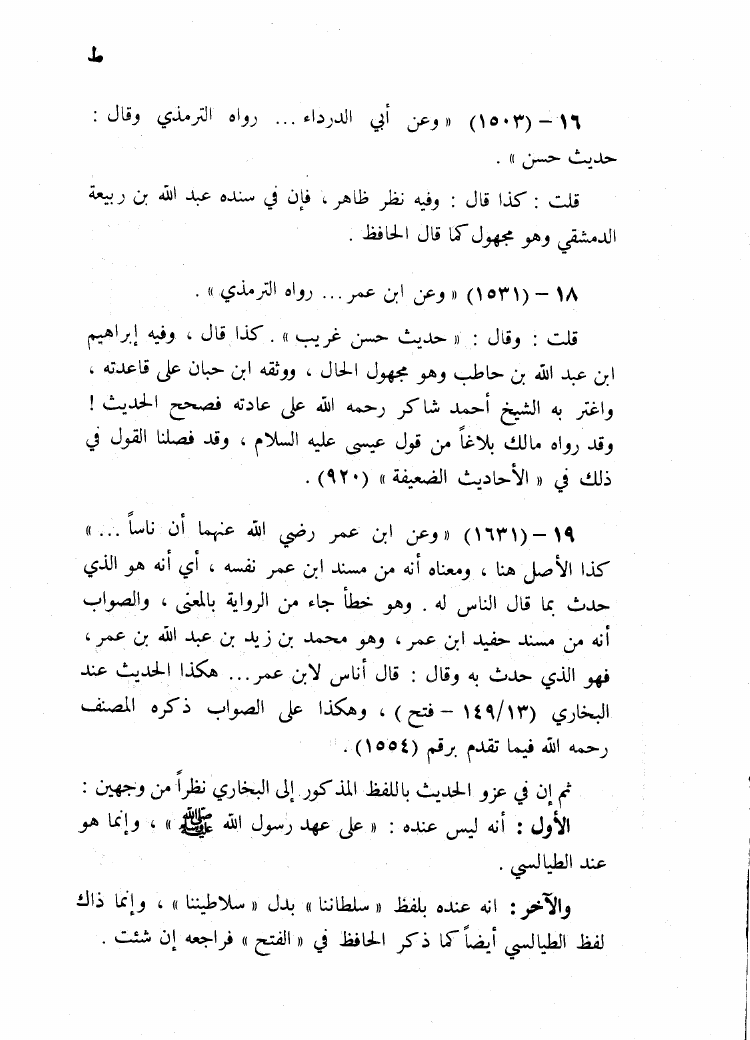 ط
١٦ – (١٥٠٣) « وعن أبي الدرداء ... رواه الترمذي وقال :
حديث حسن » .
قلت : كذا قال : وفيه نظر ظاهر ، فإن في سنده عبد الله بن ربيعة
الدمشقي وهو مجهول كما قال الحافظ .
١٨ – (١٥٣١) « وعن ابن عمر ... رواه الترمذي » .
قلت : وقال : « حديث حسن غريب » . كذا قال ، وفيه إبراهيم
ابن عبد الله بن حاطب وهو مجهول الحال ، ووثقه ابن حبان على قاعدته ،
واغتر به الشيخ أحمد شاكر رحمه الله على عادته فصحح الحديث !
وقد رواه مالك بلاغاً من قول عيسى عليه السلام ، وقد فصلنا القول في
ذلك في « الأحاديث الضعيفة » (٩٢٠) .
١٩ – (١٦٣١) « وعن ابن عمر رضي الله عنهما أن ناساً ... »
كذا الأصل هنا ، ومعناه أنه من مسند ابن عمر نفسه ، أي أنه هو الذي
حدث بما قال الناس له . وهو خطأ جاء من الرواية بالمعنى ، والصواب
أنه من مسند حفيد ابن عمر ، وهو محمد بن زيد بن عبد الله بن عمر ،
فهو الذي حدث به وقال : قال أناس لابن عمر ... هكذا الحديث عند
البخاري (١٤٩/١٣ – فتح) ، وهكذا على الصواب ذكره المصنف
رحمه الله فيما تقدم برقم (١٥٥٤) .
ثم إن في عزو الحديث باللفظ المذكور إلى البخاري نظراً من وجهين :
الأول : أنه ليس عنده : « على عهد رسول الله ﷺ » ، وإنما هو
عند الطيالسي .
والآخر : انه عنده بلفظ « سلطاننا » بدل « سلاطيننا » ، وإنما ذاك
لفظ الطيالسي أيضاً كما ذكر الحافظ في « الفتح » فراجعه إن شئت .